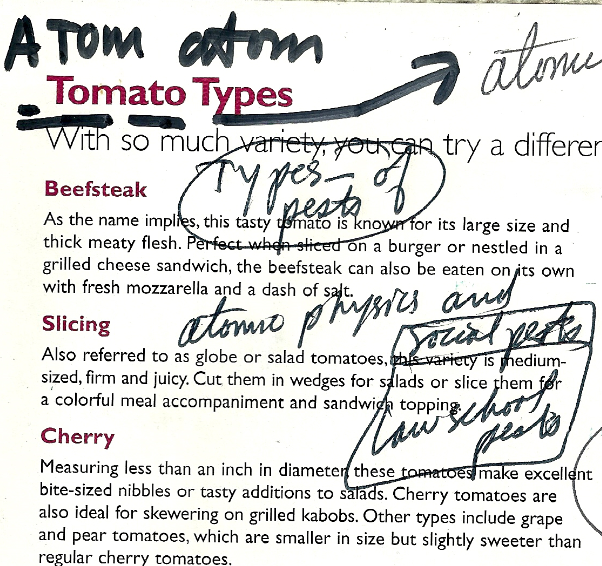 ATOM atom
atomic
Tomato Types
With so much variety, you can try a differen
Types - of
pests
Beefsteak
As the name implies, this tasty tomato is known for its large size and
thick meaty flesh. Perfect when sliced on a burger or nestled in a
grilled cheese sandwich, the beefsteak can also be eaten on its own
with fresh mozzarella and a dash of salt.
atomic physics and
social pests
Slicing
Also referred to as globe or salad tomatoes, this variety is medium-
sized, firm and juicy. Cut them in wedges for salads or slice them for
a colorful meal accompaniment and sandwich topping.
law school
pests
Cherry
Measuring less than an inch in diameter, these tomatoes make excellent
bite-sized nibbles or tasty additions to salads. Cherry tomatoes are
also ideal for skewering on grilled kabobs. Other types include grape
and pear tomatoes, which are smaller in size but slightly sweeter than
regular cherry tomatoes.